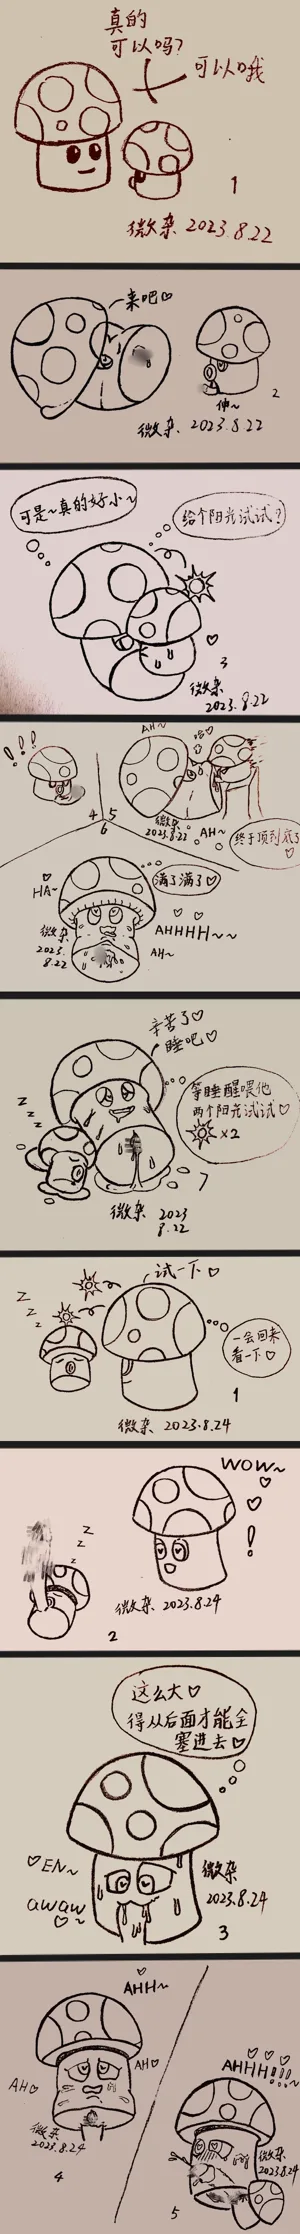 真的
可以吗?
可以哦
1
微杂 2023.8.22
来吧♡
伸~
2
微杂. 2023.8.22
可是~真的好小~
给个阳光试试?
♡
3
微杂
2023.8.22
!!!
4
AH~
哈♡
5
微杂
2023.8.22
AH~
终于顶到底了
♡
6
HA~
满了满了♡
微杂
2023.
8.22
AHHHH~~
AH~
辛苦了♡
睡吧♡
z z z
等睡醒喂他
两个阳光试试♡
×2
7
微杂 2023
8.22
试一下♡
z z z
一会回来
看一下♡
1
微杂 2023.8.24
WOW~
♡ ♡ !
z z z
微杂 2023.8.24
2
这么大♡
得从后面才能全
塞进去♡
♡EN~
awaw
♡~
微杂
2023.8.24
3
♡
AHH~
AH♡
AH♡
微杂
2023.8.24
4
♡ ♡ ♡
AHHH!!!~
微杂
2023.8.24
5